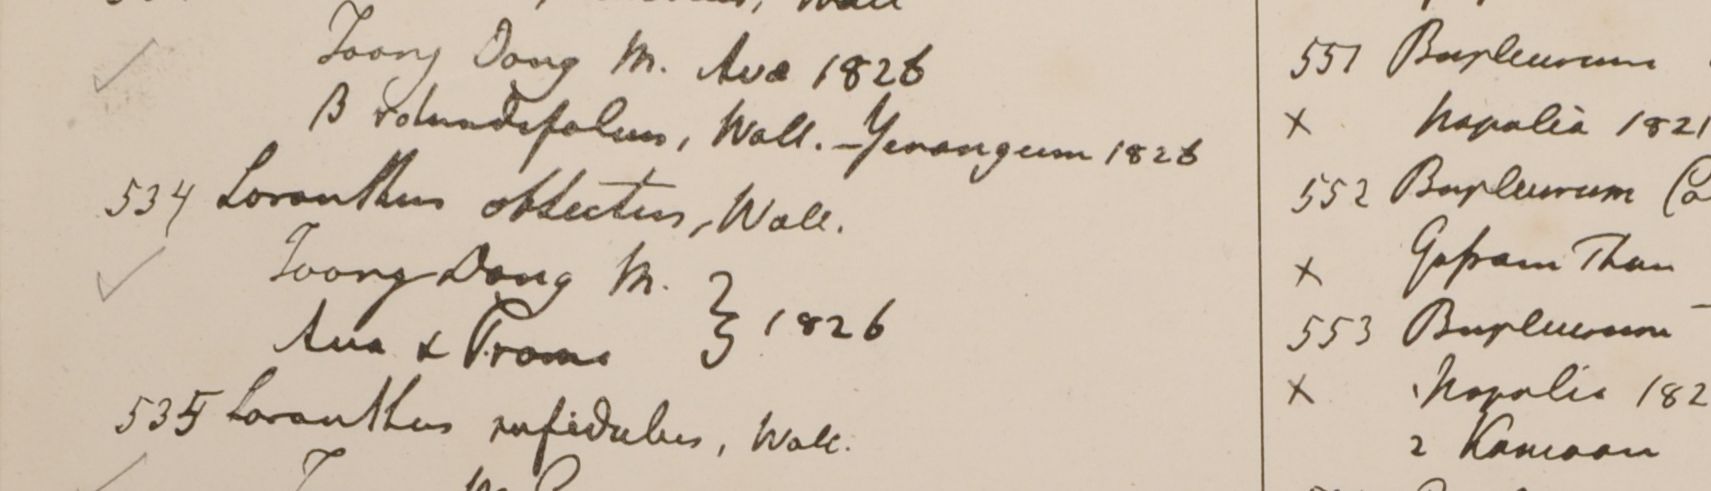 Wall
Toong Dong M. Ava 1826
β rotundifolius, Wall. - Yenangeum 1826
534 Loranthus obtectus, Wall.
✓ Toong Dong M. } 1826
Ava & Prome
535 Loranthus rufidulus, Wall.
551 Bupleurum
x Napalia 1821
552 Bupleurum
x Than
553 Bupleurum
x Napalia 182
2 Kamaon